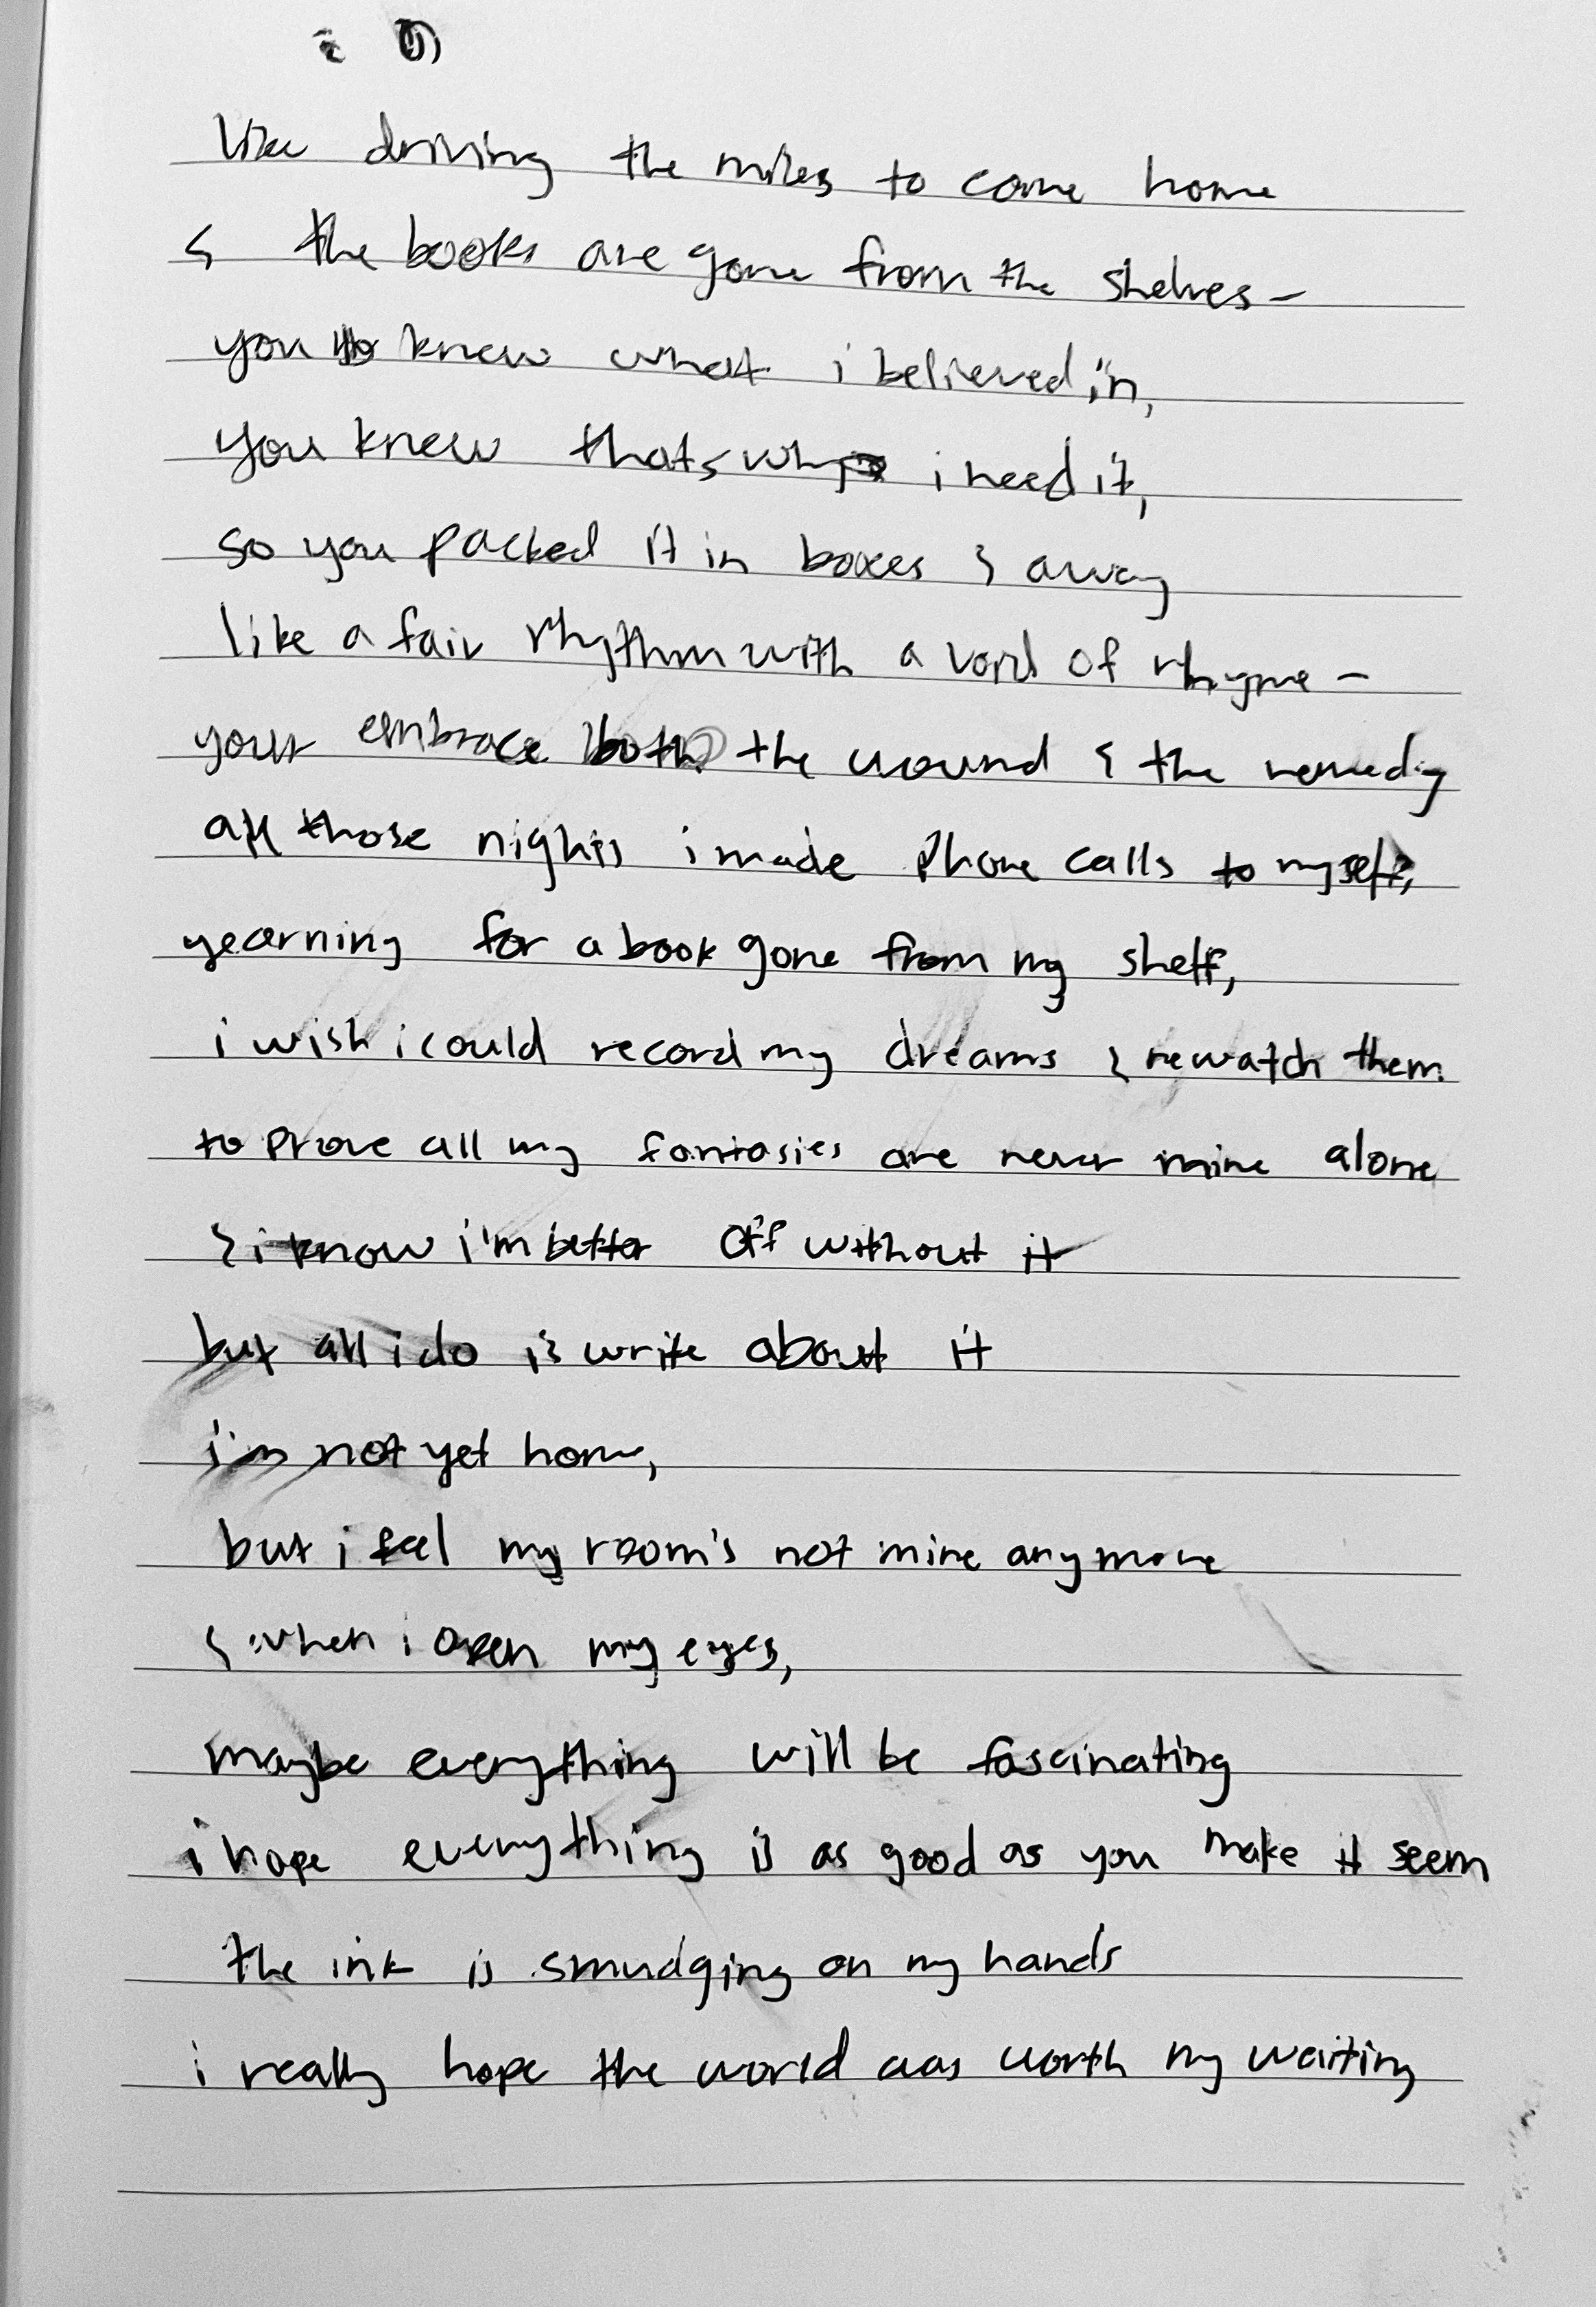 like driving the miles to come home
& the books are gone from the shelves –
you knew what i believed in,
you knew thats why i need it,
so you packed it in boxes & away
like a fair rhythm with a void of rhyme –
your embrace both the wound & the remedy
all those nights i made phone calls to myself,
yearning for a book gone from my shelf,
i wish i could record my dreams & rewatch them
to prove all my fantasies are never mine alone
& i know i'm better off without it
but all i do is write about it
i'm not yet home,
but i feel my room's not mine anymore
& when i open my eyes,
maybe everything will be fascinating
i hope everything is as good as you make it seem
the ink is smudging on my hands
i really hope the world was worth my waiting